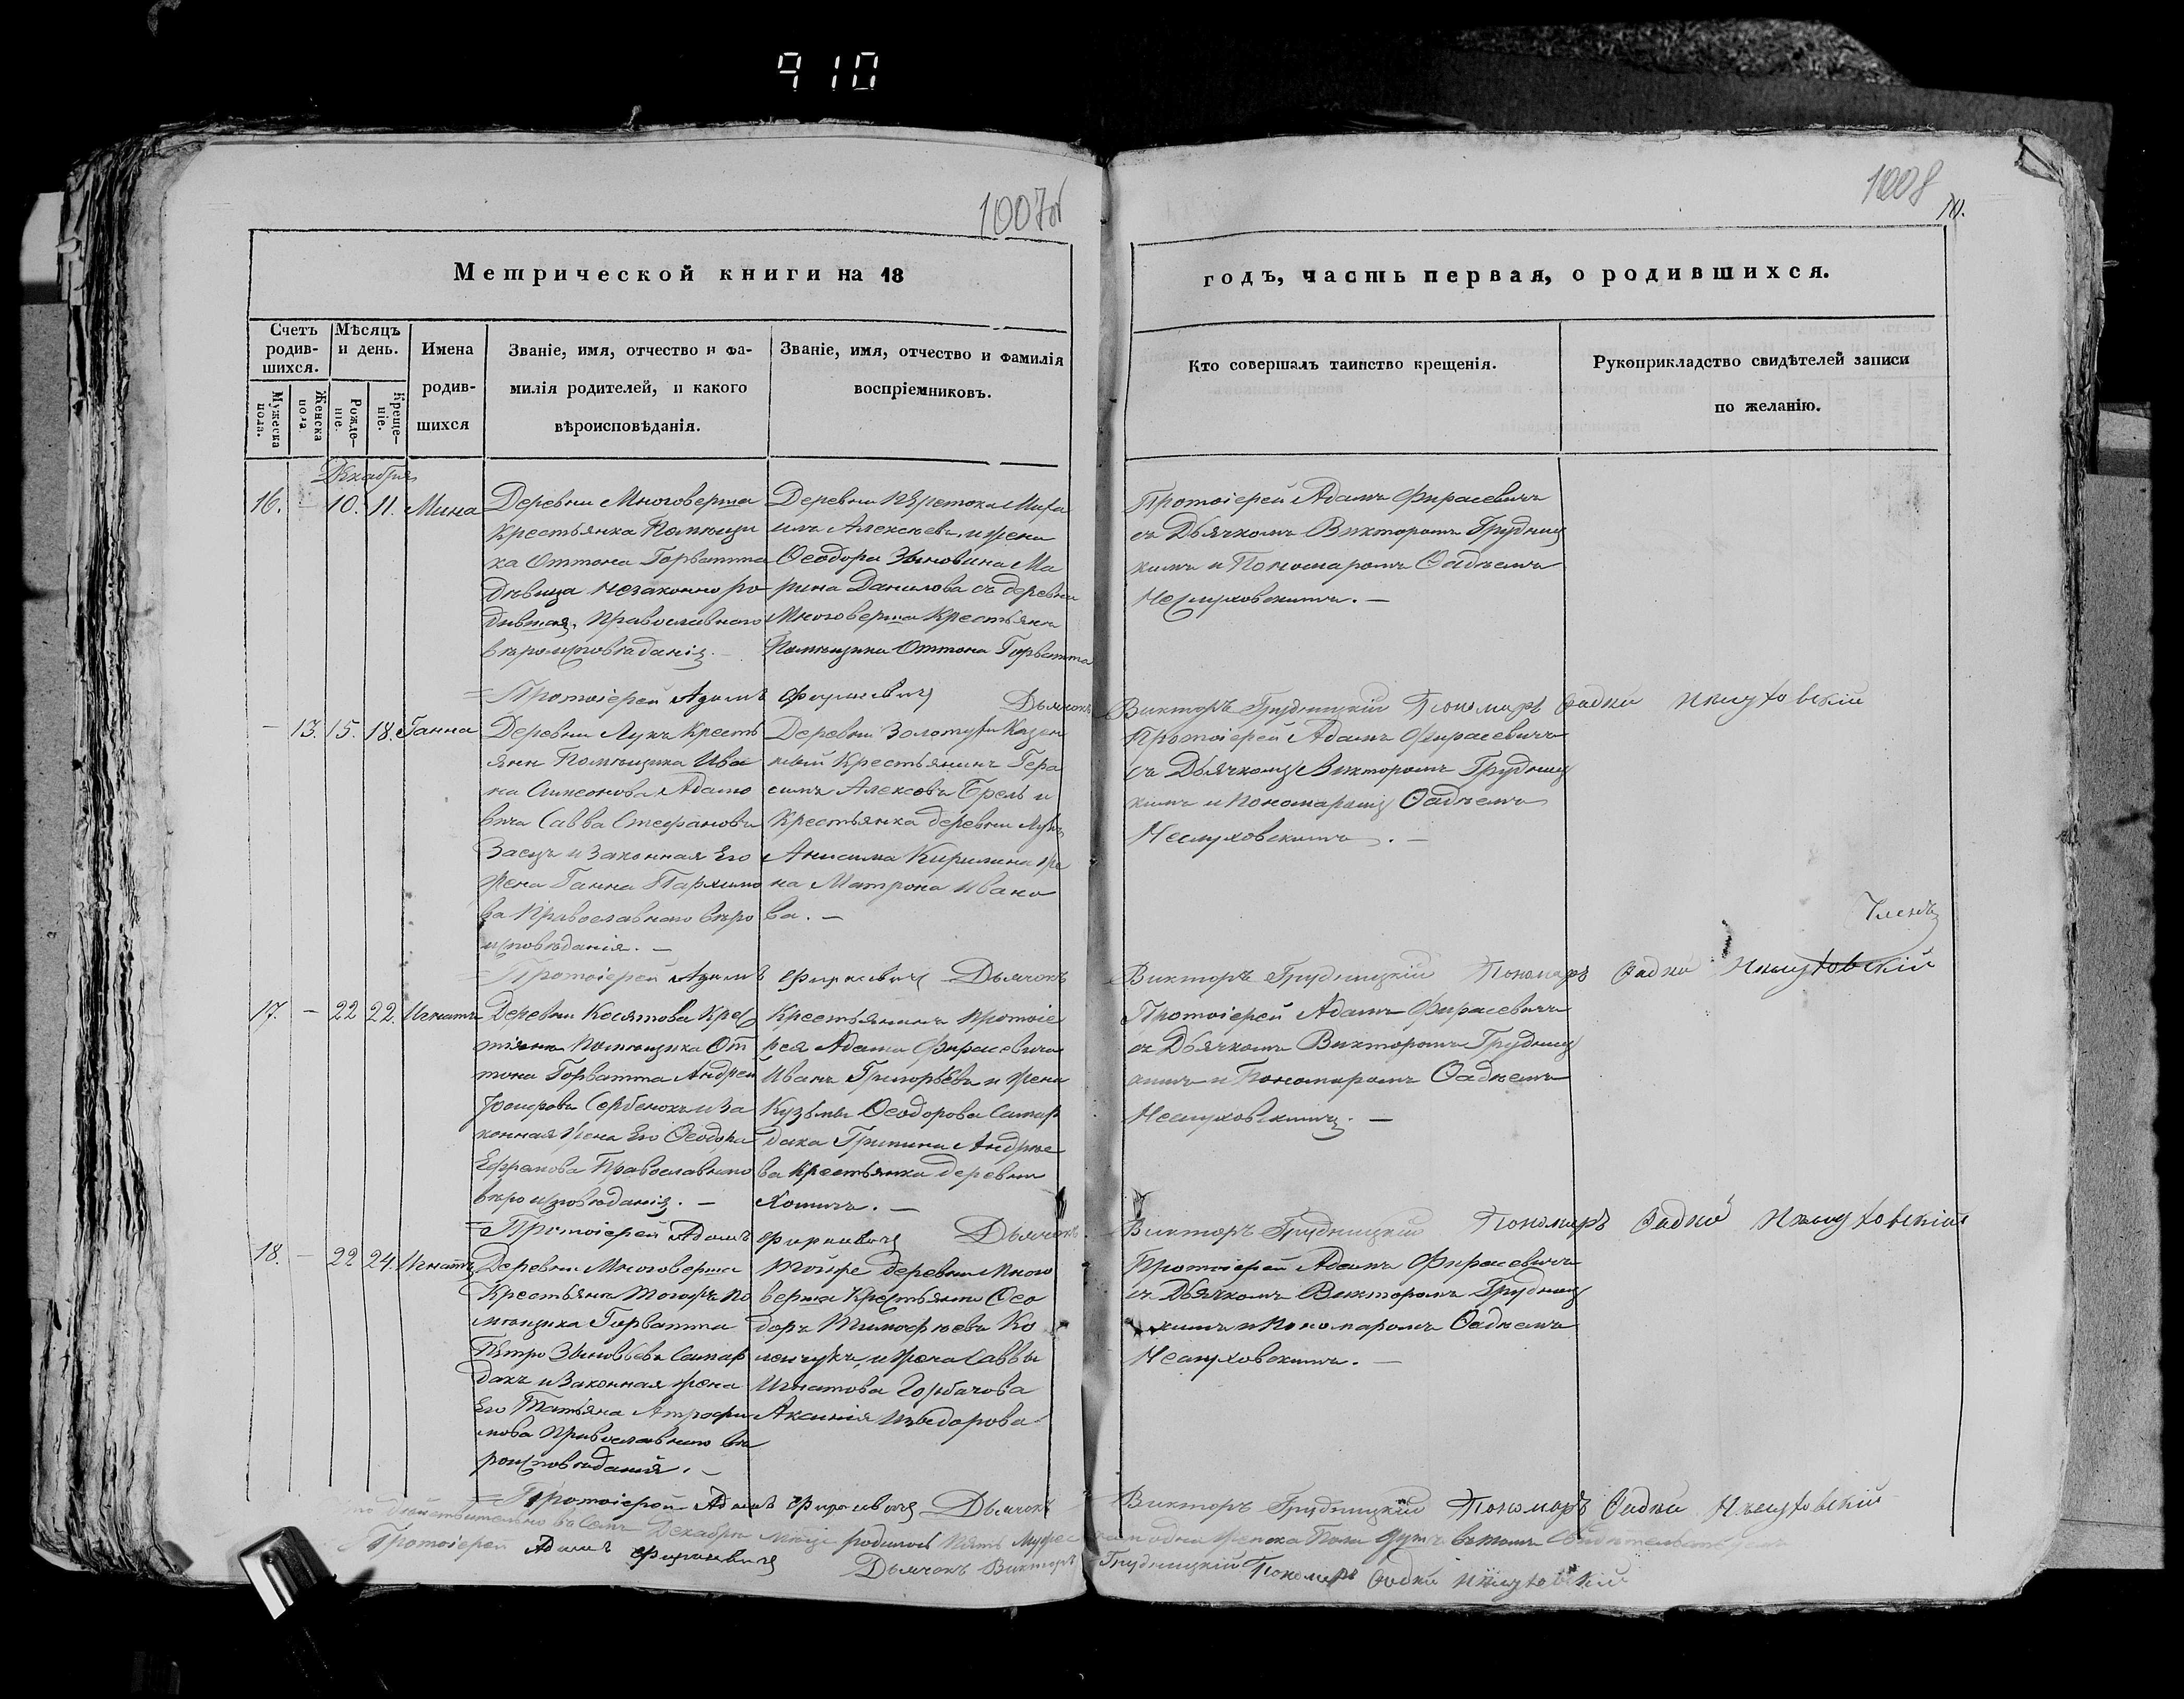 910
1007об
1008
Метрической книги на 18
годъ, часть первая, о родившихся.
Счетъ родив-шихся.
Мѣсяцъ и день.
Имена родив-шихся
Званіе, имя, отчество и фа-
милія родителей, и какого
вѣроисповѣданія.
Званіе, имя, отчество и фамилія
воспріемниковъ.
Кто совершалъ таинство крещенія.
Рукоприкладство свидѣтелей записи
по желанію.
Мужеска пола.
Женска пола
Рожде-ніе.
Креще-ніе.
Декабря
16. - 10. 11. Мина
Деревни Многоверша
Крестьянка Помѣщи
ка Оттона Горватта
дѣвица незаконно ро
дившая, Православнаго
вѣроисповѣданія. -
Михаи
илъ Алексѣевъ, и жена
Ѳеодора Зѣновина Ма
рина Данилова съ деревни
Многоверша Крестьяне
Помѣщика Оттона Горватта
Протоіерей Адамъ Фирасевичъ
съ Дьячкомъ Викторомъ Грудниц
кимъ и Пономаромъ Ѳадѣемъ
Неслуховскимъ. -
Протоіерей Адамъ Фирасевичъ Дьячокъ Викторъ Грудницкій Пономаръ Ѳадѣй Неслуховскій
- 13. 15. 18. Ганна
Деревни Лукъ Кресть
яне Помѣщика Ива
на Симеонова Адамо
вича Савва Стефановъ
Заецъ и Законная Его
жена Ганна Пархимо
ва Православнаго вѣро
исповѣданія. -
Деревни Золотухи Казен
ный Крестьянинъ Гера
симъ Алексѣевъ Брель и
Крестьянка деревни Лукъ
Анисима Кирилина же
на Матрона Ивано
ва. -
Протоіерей Адамъ Фирасевичъ
съ Дьячкомъ Викторомъ Грудниц
кимъ и Пономаромъ Ѳадѣемъ
Неслуховскимъ. -
Членъ
Протоіерей Адамъ Фирасевичъ Дьячокъ Викторъ Грудницкій Пономаръ Ѳадѣй Неслуховскій
17. - 22 22. Игнатъ
Деревни Косятова Крес
тьяне Помѣщика От
тона Горватта Андрей
Сербенюкъ и За
конная Жена Его Ѳеодора
Православнаго
вѣроисповѣданія. -
Крестьянинъ Протоіе
рея Адама Фирасевича
Иванъ Григорьевъ и жена
Кузьмы Ѳеодорова Сапар
дака Грипина Андрѣе
ва Крестьянка деревни
Протоіерей Адамъ Фирасевичъ
съ Дьячкомъ Викторомъ Грудниц
кимъ и Пономаромъ Ѳадѣемъ
Неслуховскимъ. -
Протоіерей Адамъ Фирасевичъ Дьячокъ Викторъ Грудницкій Пономаръ Ѳадѣй Неслуховскій
18. - 22 24. Игнатъ
Деревни Многоверша
Крестьяне Тогожъ По
мѣщика Горватта
Петро Зѣновьевъ Сапар
дакъ и Законная жена
Его Татьяна Атрофи
мова Православнаго вѣ
роисповѣданія. -
Тойже деревни Много
верша Крестьяне Ѳео
доръ Тимофѣевъ Ко
ленчукъ, и жена Саввы
Игнатова Горбачова
Аксинія Изедорова
Протоіерей Адамъ Фирасевичъ
съ Дьячкомъ Викторомъ Грудниц
кимъ и Пономаромъ Ѳадѣемъ
Неслуховскимъ. -
Протоіерей Адамъ Фирасевичъ Дьячокъ Викторъ Грудницкій Пономаръ Ѳадѣй Неслуховскій
что дѣйствительно въ Семъ Декабрѣ родилось пять и одна женска Пола
Протоіерей Адамъ Фирасевичъ Дьячокъ Викторъ Грудницкій Пономаръ Ѳадѣй Неслуховскій